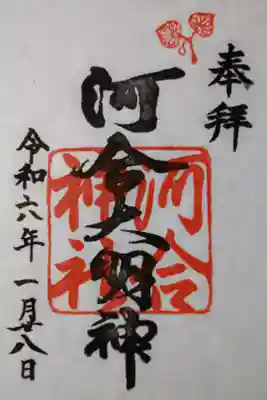 奉拝
河合大明神
河合
神社
令和六年 一月廿八日